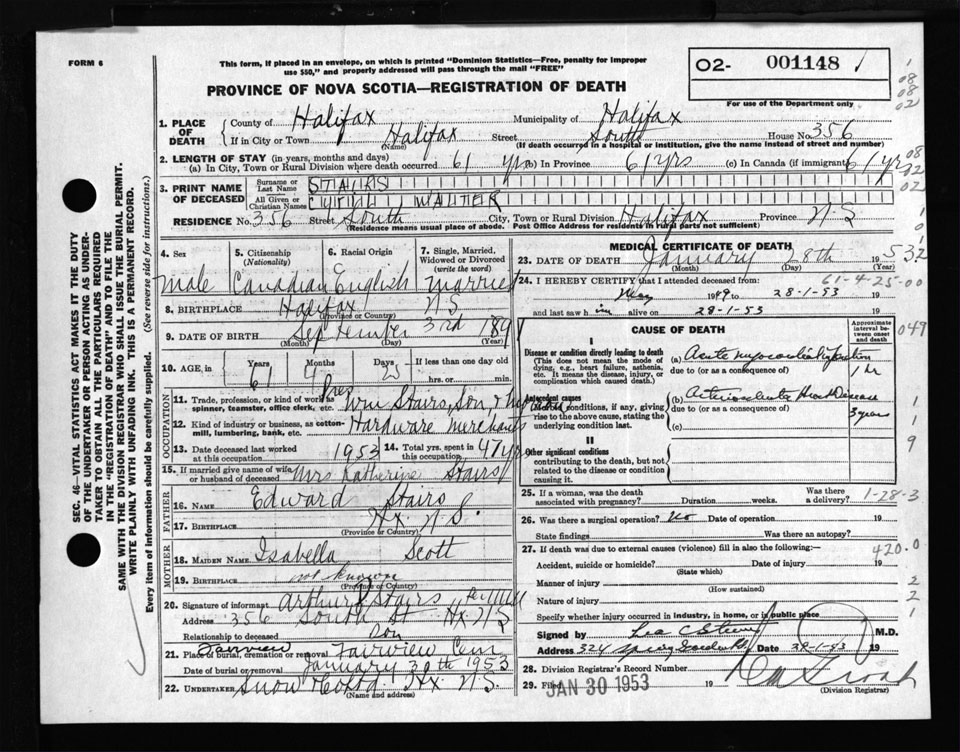 FORM 6
This form, if placed in an envelope, on which is printed "Dominion Statistics—Free, penalty for improper
use $50," and properly addressed will pass through the mail "FREE"
O2- 001148
For use of the Department only
PROVINCE OF NOVA SCOTIA—REGISTRATION OF DEATH
08
08
02
1. PLACE OF DEATH
County of Halifax Municipality of Halifax
If in City or Town Halifax Street South House No. 356
(Name) (If death occurred in a hospital or institution, give the name instead of street and number)
2. LENGTH OF STAY (in years, months and days)
(a) In City, Town or Rural Division where death occurred 61 yrs (b) In Province 61 yrs (c) In Canada (if immigrant) 61 yrs
3. PRINT NAME OF DECEASED
Surname or Last Name STAIRS
All Given or Christian Names CYRIL WALTER
RESIDENCE No. 356 Street South City, Town or Rural Division Halifax Province N-S
(Residence means usual place of abode. Post Office Address for residents in rural parts not sufficient)
4. Sex 5. Citizenship (Nationality) 6. Racial Origin 7. Single, Married, Widowed or Divorced (write the word)
Male Canadian English married
8. BIRTHPLACE Halifax N S
(Province or Country)
9. DATE OF BIRTH September 3rd 1891
(Month) (Day) (Year)
10. AGE, in Years Months Days If less than one day old
61 4 25 hrs. or min.
OCCUPATION
11. Trade, profession, or kind of work as spinner, teamster, office clerk, etc. Pres Wm Stairs, Son, &
12. Kind of industry or business, as cotton-mill, lumbering, bank, etc. Hardware Merchants
13. Date deceased last worked at this occupation 1953 14. Total yrs. spent in this occupation 47 yrs
15. If married give name of wife or husband of deceased Mrs Katherine Stairs
FATHER
16. NAME Edward Stairs
17. BIRTHPLACE Hx. N.S.
(Province or Country)
MOTHER
18. MAIDEN NAME Isabella Scott
19. BIRTHPLACE not known
(Province or Country)
20. Signature of informant Arthur J Stairs per
Address 356 South St Hx N S
Relationship to deceased Son
21. Place of burial, cremation or removal Fairview Fairview Cem
Date of burial or removal January 30th 1953
22. UNDERTAKER Snow & Co Ltd. Hx. N.S.
(Name and address)
MEDICAL CERTIFICATE OF DEATH
23. DATE OF DEATH January 28th 1953
(Month) (Day) (Year)
24. I HEREBY CERTIFY that I attended deceased from: 61-4-25-00
May 1949 to 28-1-53 19
and last saw him alive on 28-1-53 19
CAUSE OF DEATH
Approximate interval between onset and death
I
Disease or condition directly leading to death
(This does not mean the mode of dying, e.g., heart failure, asthenia, etc. It means the disease, injury, or complication which caused death.)
(a) Acute myocardial infarction
due to (or as a consequence of) 1 hr
Antecedent causes
Morbid conditions, if any, giving rise to the above cause, stating the underlying condition last.
(b) Arteriosclerotic Heart Disease
due to (or as a consequence of) 3 years
(c)
II
Other significant conditions
contributing to the death, but not related to the disease or condition causing it.
25. If a woman, was the death associated with pregnancy? Duration weeks. Was there a delivery? 1-28-3
26. Was there a surgical operation? No Date of operation 19
State findings Was there an autopsy?
27. If death was due to external causes (violence) fill in also the following:— 420.0
Accident, suicide or homicide? Date of injury 19
(State which)
Manner of injury
(How sustained)
Nature of injury
Specify whether injury occurred in industry, in home, or in public place
Signed by M.D.
Address 324 Spring Garden Rd Date 29-1-53
28. Division Registrar's Record Number
29. Filed JAN 30 1953 19
(Division Registrar)
SEC. 46—VITAL STATISTICS ACT MAKES IT THE DUTY
OF THE UNDERTAKER OR PERSON ACTING AS UNDER-
TAKER TO OBTAIN ALL THE PARTICULARS REQUIRED
IN THE "REGISTRATION OF DEATH" AND TO FILE THE
SAME WITH THE DIVISION REGISTRAR WHO SHALL ISSUE THE BURIAL PERMIT.
WRITE PLAINLY WITH UNFADING INK. THIS IS A PERMANENT RECORD.
Every item of information should be carefully supplied. (See reverse side for instructions.)